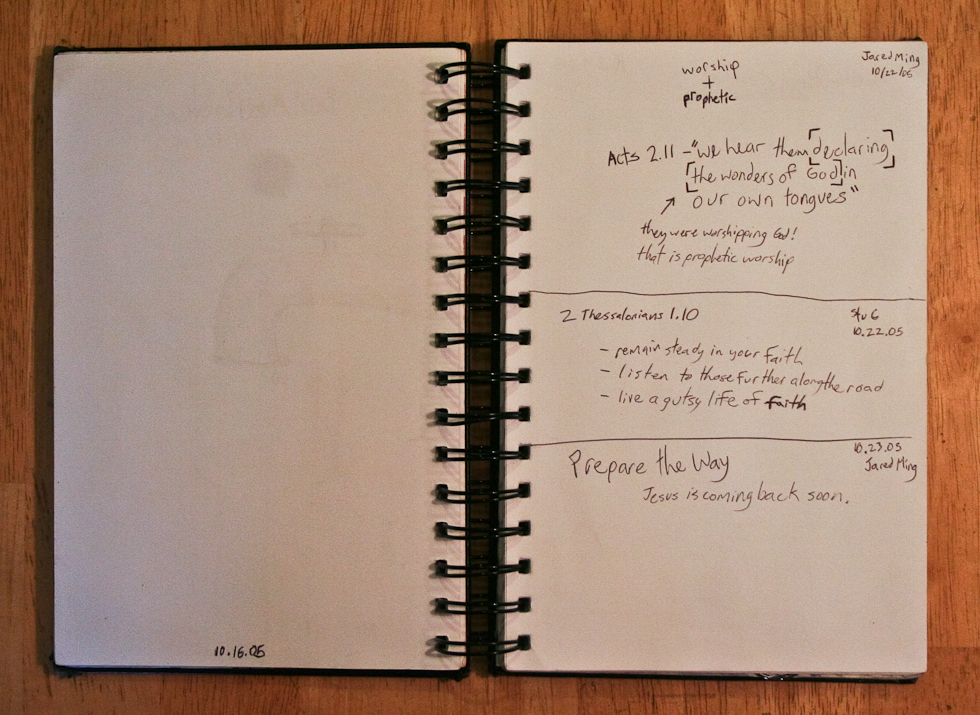 10.16.05
Jared Ming
10/22/05
worship
+
prophetic
Acts 2.11 - "we hear them [declaring]
[the wonders of God] in
our own tongues"
they were worshipping God!
that is prophetic worship
2 Thessalonians 1.10
10.22.05
- remain steady in your faith
- listen to those further along the road
- live a gutsy life of faith
10.23.05
Jared Ming
Prepare the Way
Jesus is coming back soon.